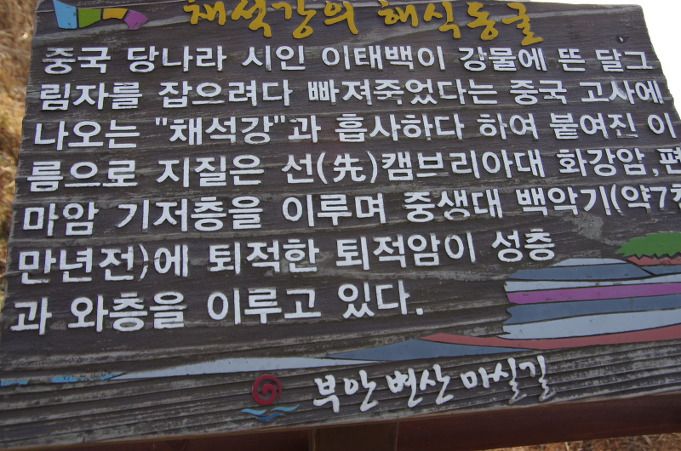 채석강의 해식동굴
중국 당나라 시인 이태백이 강물에 뜬 달그
림자를 잡으려다 빠져죽었다는 중국 고사에
나오는 "채석강"과 흡사하다 하여 붙여진 이
름으로 지질은 선(先)캠브리아대 화강암,편
마암 기저층을 이루며 중생대 백악기(약7천
만년전)에 퇴적한 퇴적암이 성층
과 와층을 이루고 있다.
부안 변산 마실길